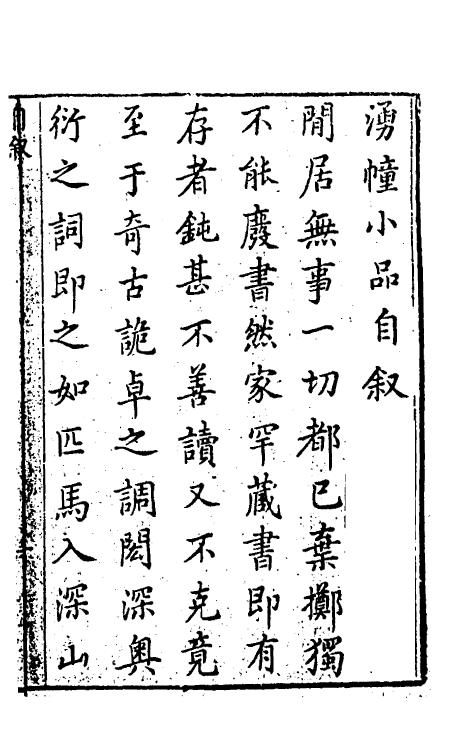 湧幢小品自叙
閒居無事一切都已棄擲獨
不能廢書然家罕藏書即有
存者鈍甚不善讀又不克竟
至于奇古詭卓之調閎深奥
衍之詞即之如匹馬入深山
自叙